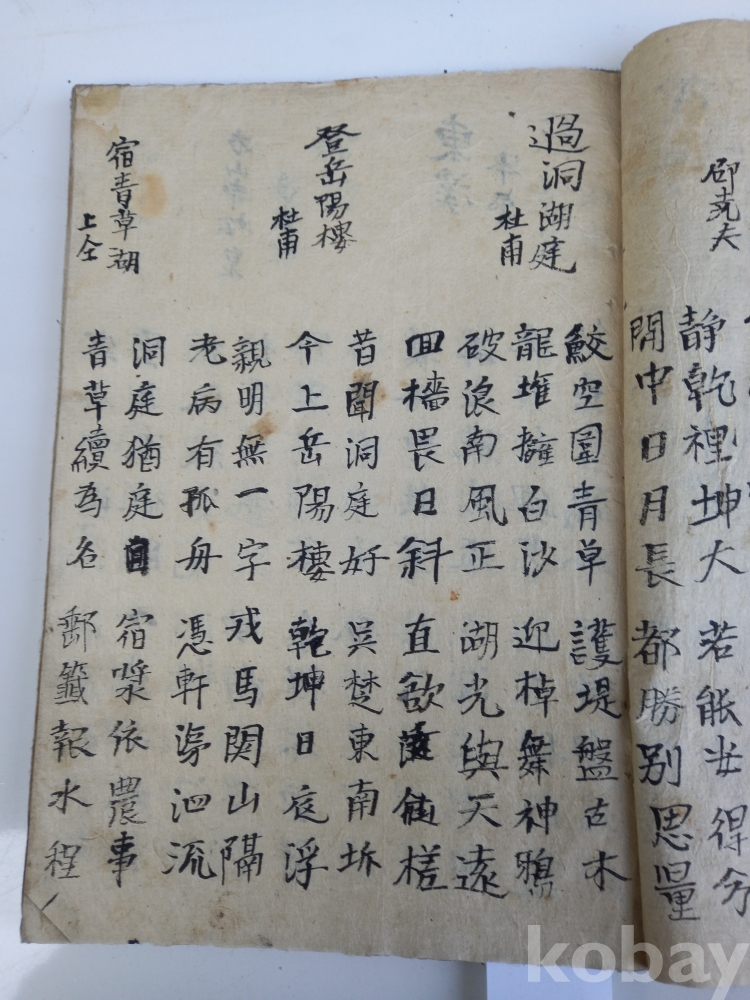 邵堯夫
静乾裡坤大 若能得分
閒中日月長 都勝別思量
過洞湖庭
杜甫
鮫空圍青草 護堤盤古木
龍堆擁白沙 迎棹舞神鴉
破浪南風正 湖光與天遠
回檣畏日斜 直欲仙槎
登岳陽樓
杜甫
昔聞洞庭好 吳楚東南坼
今上岳陽樓 乾坤日浮
親明無一字 戎馬関山隔
老病有孤舟 憑軒涕泗流
宿青草湖
上仝
洞庭猶庭自 宿漿依農事
青草續為名 郵籤報水程
kobay